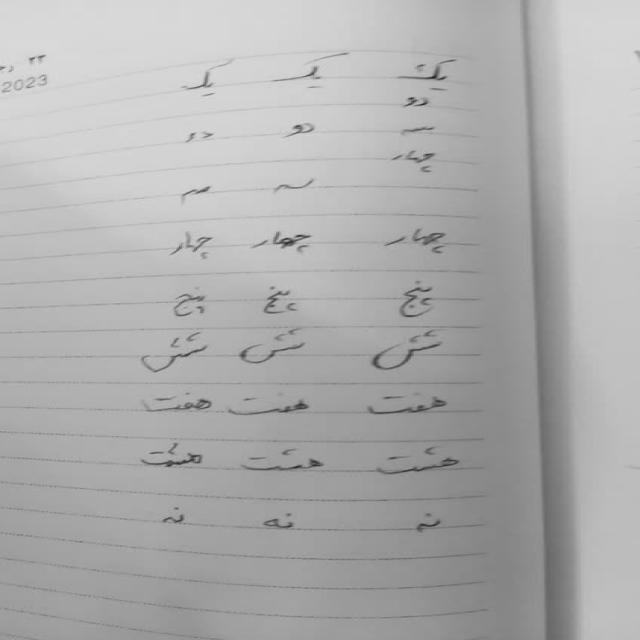 ۲۳
2023
یک یک یک
دو
دو دو سه
چهار
سه سه
چهار چهار چهار
پنج پنج پنج
شش شش شش
هفت هفت هفت
هشت هشت هشت
نه نه نه